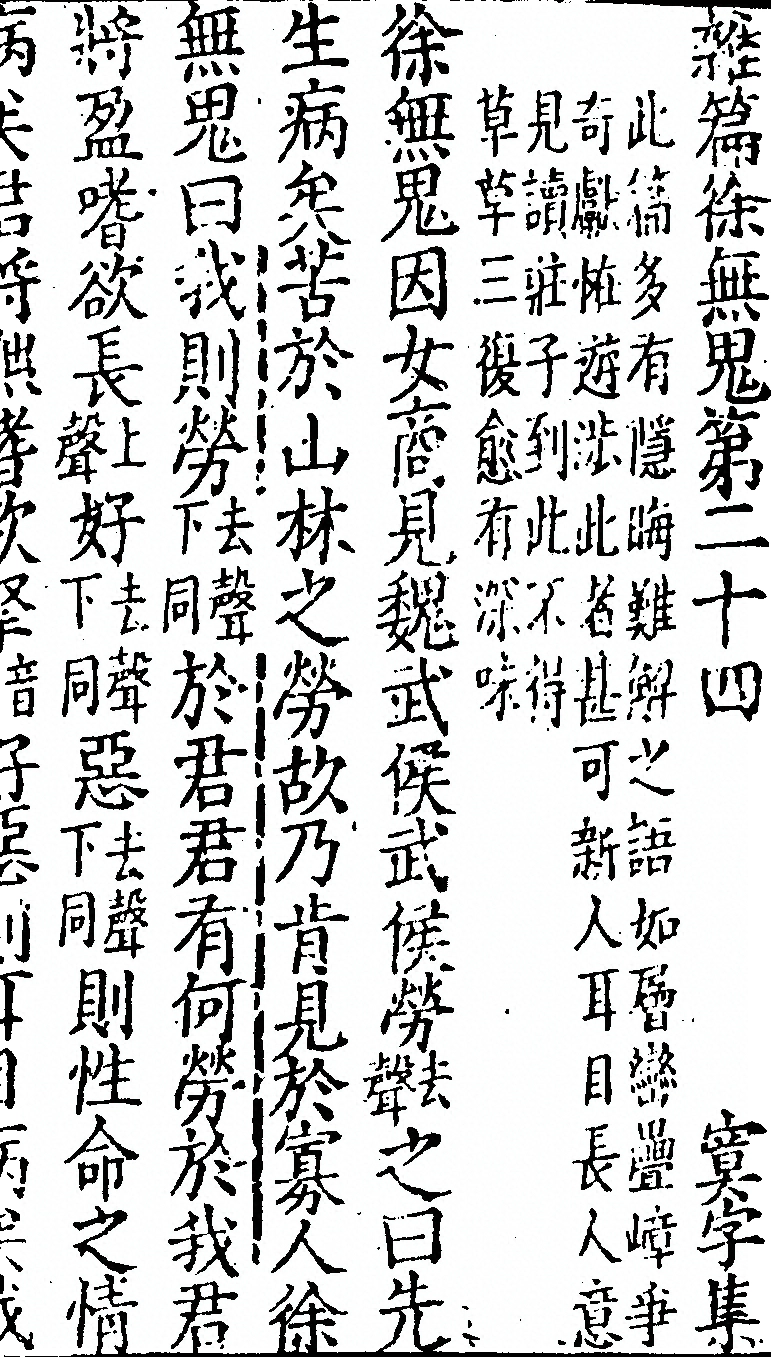 雜篇徐無鬼第二十四　寞字集
此篇多有隱晦難解之語如層巒疊嶂爭
奇獻怪遊涉此者甚可新人耳目長人意
見讀莊子到此不得
草草三復愈有深味
徐無鬼因女商見魏武侯武侯勞去聲之曰先
生病矣苦於山林之勞故乃肯見於寡人徐
無鬼曰我則勞去聲下同於君君有何勞於我君
將盈嗜欲長上聲好去聲下同惡去聲下同則性命之情
病矣君將